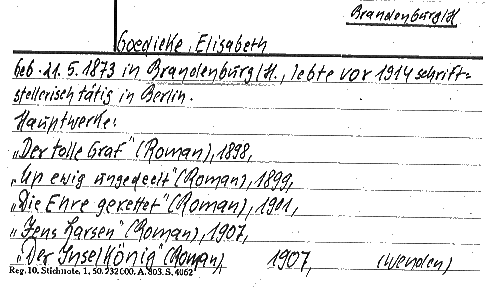 Brandenburg/H
Goedicke, Elisabeth
Geb. 21.5.1873 in Brandenburg/H., lebte vor 1914 schrift=
stellerisch tätig in Berlin.
Hauptwerke:
„Der tolle Graf" (Roman), 1898,
„Up ewig ungedeelt" (Roman), 1899,
„Die Ehre gerettet" (Roman), 1901,
„Jens Larsen" (Roman), 1907,
„Der Inselkönig" (Roman), 1907, (wenden)
Reg. 10. Stichnote, 1, 50. 232 000. A. 803. S. 4062